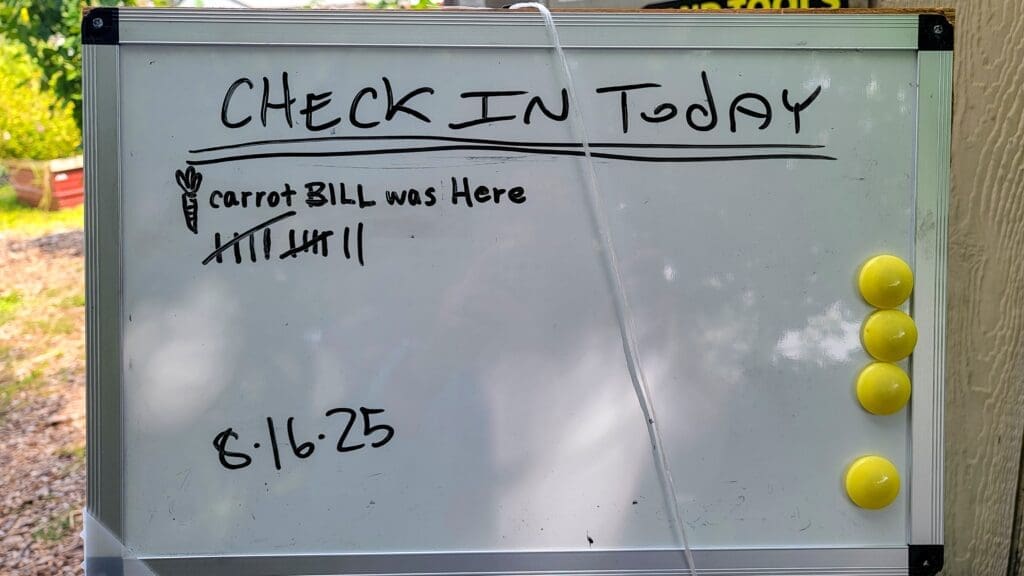 TOOLS
CHECK IN TodAY
carrot BILL was Here
8·16·25